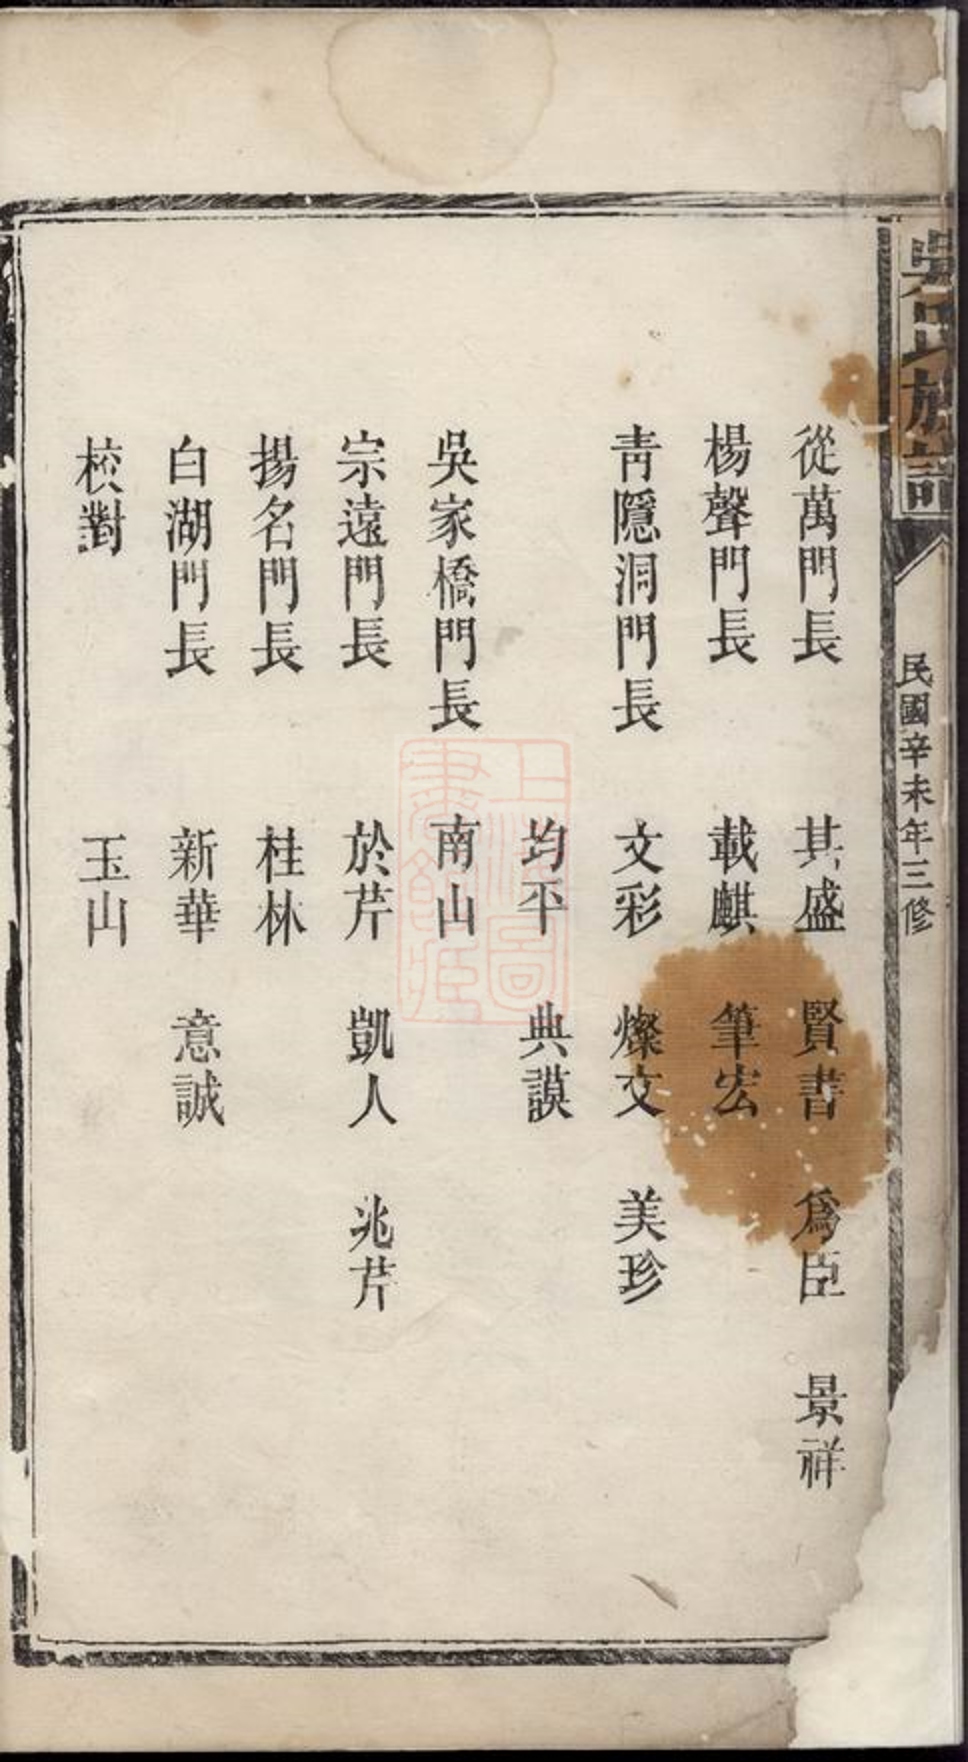 吳氏族譜
民國辛未年三修
從萬門長 其盛 賢書 爲臣 景祥
楊聲門長 載麒 筆宏
靑隱洞門長 文彩 燦文 美珍
均平 典謨
吳家橋門長 南山
宗遠門長 於芹 凱人 兆芹
揚名門長 桂林
白湖門長 新華 意誠
校對 玉山
上海圖書館藏